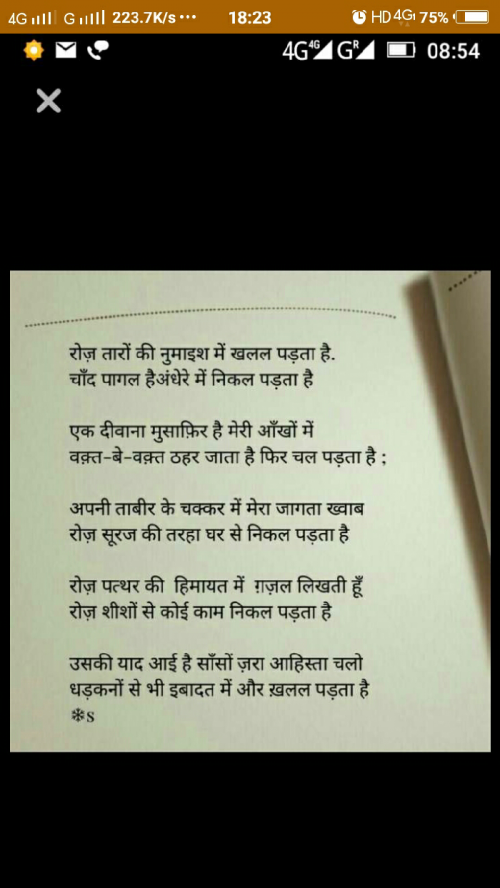 4G G 223.7K/s ••• 18:23 HD 4G 75%
4G 4G G R 08:54
रोज़ तारों की नुमाइश में खलल पड़ता है.
चाँद पागल हैअंधेरे में निकल पड़ता है
एक दीवाना मुसाफ़िर है मेरी आँखों में
वक़्त-बे-वक़्त ठहर जाता है फिर चल पड़ता है ;
अपनी ताबीर के चक्कर में मेरा जागता ख्वाब
रोज़ सूरज की तरहा घर से निकल पड़ता है
रोज़ पत्थर की हिमायत में ग़ज़ल लिखती हूँ
रोज़ शीशों से कोई काम निकल पड़ता है
उसकी याद आई है साँसों ज़रा आहिस्ता चलो
धड़कनों से भी इबादत में और ख़लल पड़ता है
❄s